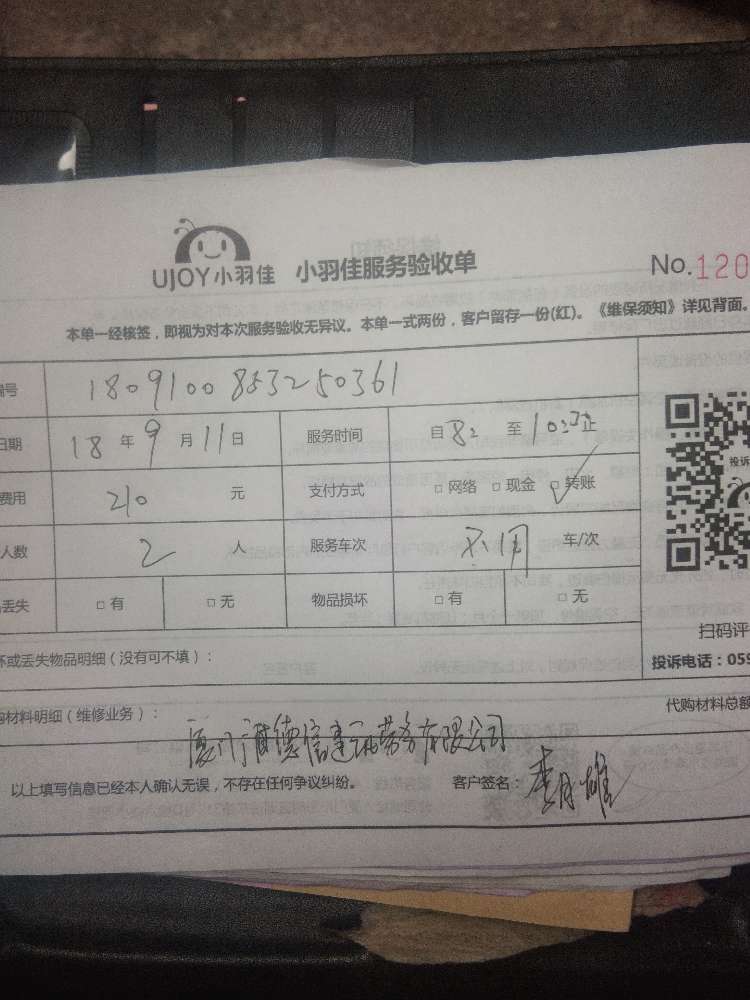 UJOY小羽佳 小羽佳服务验收单 No.120
本单一经核签，即视为对本次服务验收无异议。本单一式两份，客户留存一份(红)。《维保须知》详见背面。
编号 1809100853250361
日期 18年9月11日 服务时间 自8: 至10:30止
费用 210 元 支付方式 □网络 □现金 □转账
人数 2 人 服务车次 不用 车/次
丢失 □有 □无 物品损坏 □有 □无
扫码评
坏或丢失物品明细（没有可不填）： 投诉电话：059
购材料明细（维修业务）： 代购材料总额
厦门 德信 劳务有限公司
以上填写信息已经本人确认无误，不存在任何争议纠纷。 客户签名：李 雄
投诉